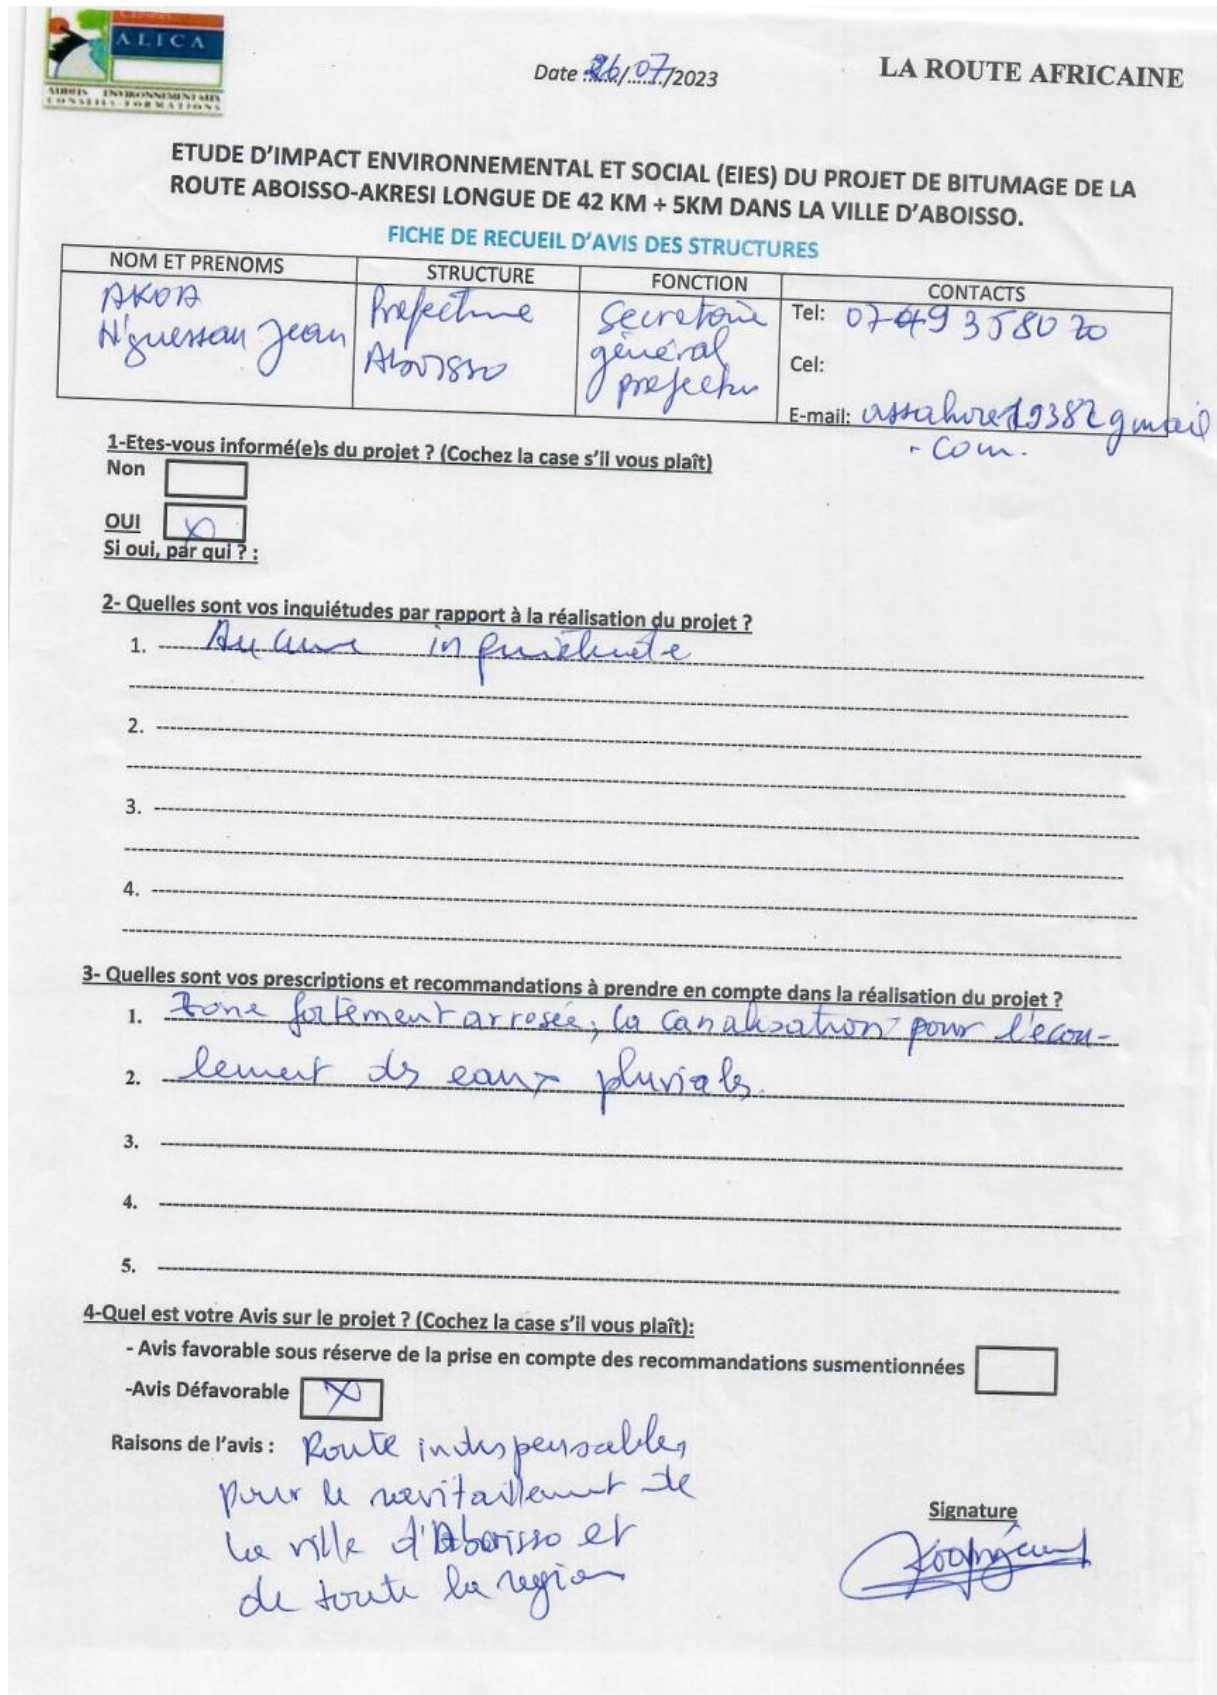 ALICA
AUDITS ENVIRONNEMENTAUX
CONSEILS FORMATIONS
Date :26/07/2023
LA ROUTE AFRICAINE
ETUDE D'IMPACT ENVIRONNEMENTAL ET SOCIAL (EIES) DU PROJET DE BITUMAGE DE LA
ROUTE ABOISSO-AKRESI LONGUE DE 42 KM + 5KM DANS LA VILLE D'ABOISSO.
FICHE DE RECUEIL D'AVIS DES STRUCTURES
NOM ET PRENOMS STRUCTURE FONCTION CONTACTS
AKOA
N'guessan Jean
Prefecture
Aboisso
Secretaire
général
prefecture
Tel: 0749358020
Cel:
E-mail: gmail
.com.
1-Etes-vous informé(e)s du projet ? (Cochez la case s'il vous plaît)
Non
OUI X
Si oui, par qui ? :
2- Quelles sont vos inquiétudes par rapport à la réalisation du projet ?
1. Aucune inquiétude
2.
3.
4.
3- Quelles sont vos prescriptions et recommandations à prendre en compte dans la réalisation du projet ?
1. Zone fortement arrosée, la canalisation pour l'ecou-
2. lement des eaux pluviales.
3.
4.
5.
4-Quel est votre Avis sur le projet ? (Cochez la case s'il vous plaît):
- Avis favorable sous réserve de la prise en compte des recommandations susmentionnées
-Avis Défavorable X
Raisons de l'avis : Route indispensable,
pour le ravitaillement de
la ville d'Aboisso et
de toute la region
Signature